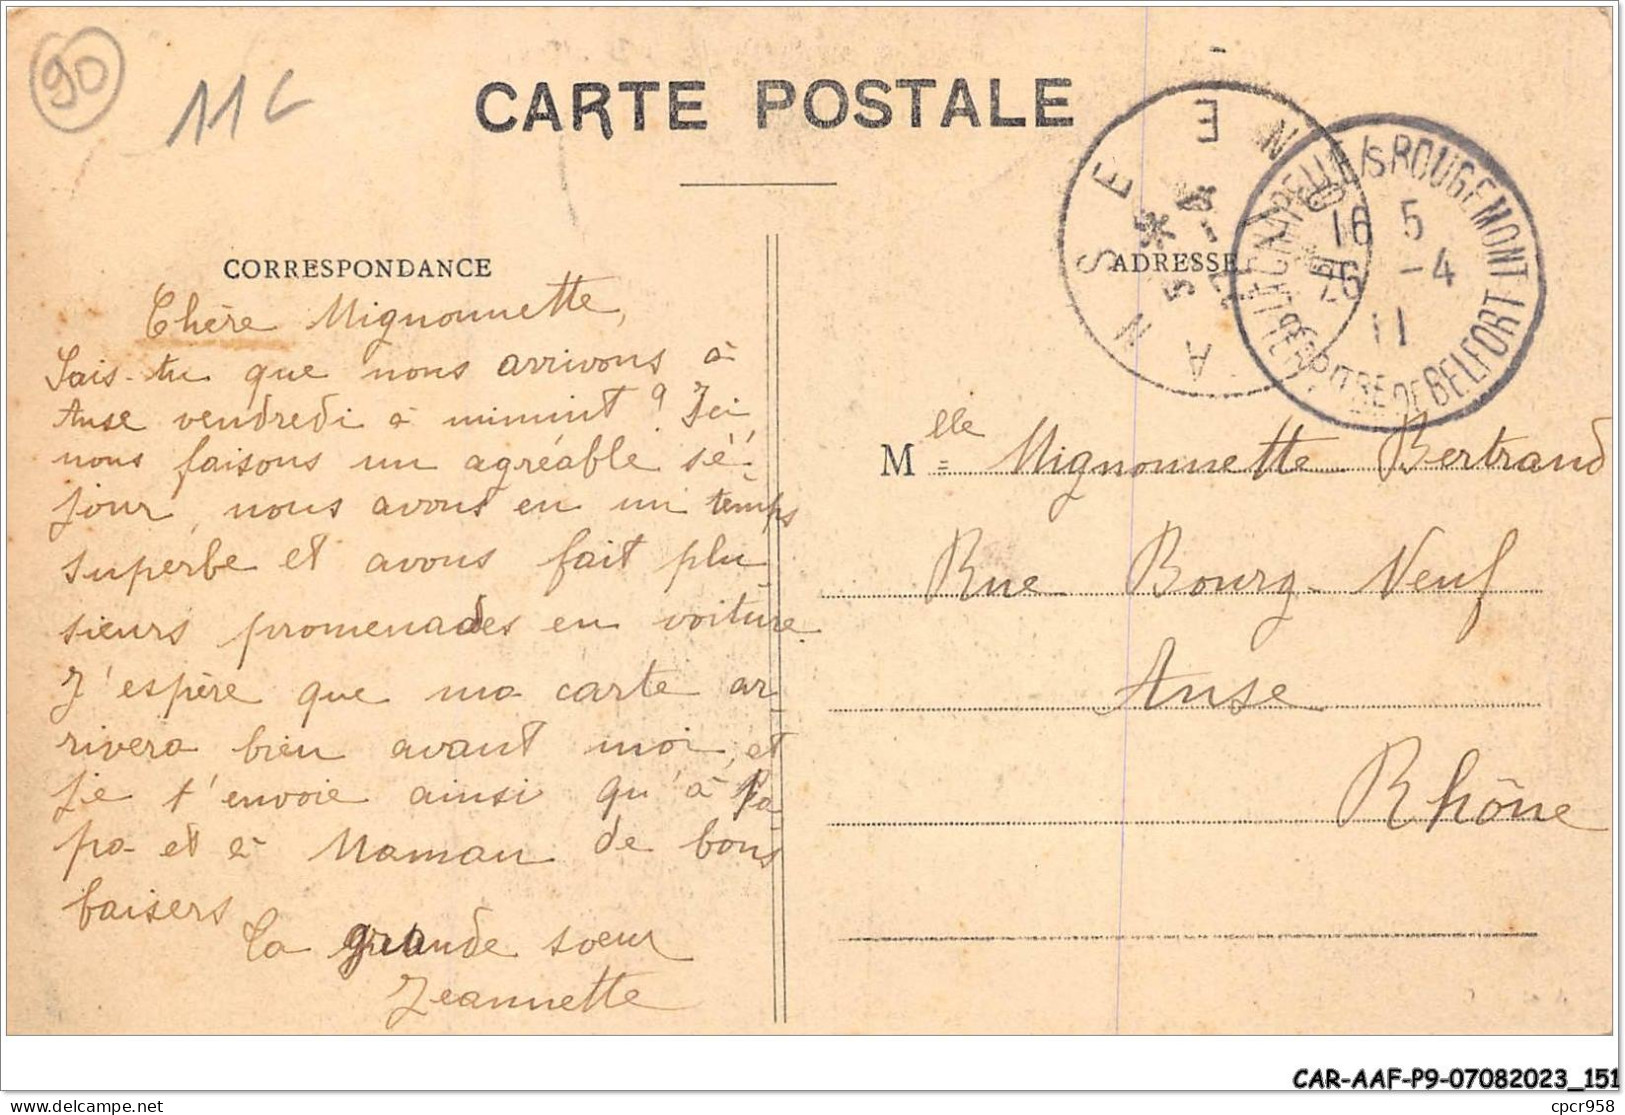 90
11C
CARTE POSTALE
CORRESPONDANCE
Chère Mignonnette,
Sais-tu que nous arrivons à
Anse vendredi à minuit ? Ici
nous faisons un agréable sé-
jour, nous avons eu un temps
superbe et avons fait plu-
sieurs promenades en voiture.
J'espère que ma carte ar-
rivera bien avant moi, et
je t'envoie ainsi qu'à Pa-
pa et à Maman de bons
baisers
Ta grande soeur
Jeannette
ANSE
RHÔNE
/S ROUGEMONT
16 5
26 -4
11
TERRITRE DE BELFORT
ADRESSE
Mlle Mignonnette Bertrand
Rue Bourg-Neuf
Anse
Rhône
CAR-AAF-P9-07082023_151
delcampe.net
cpcr958